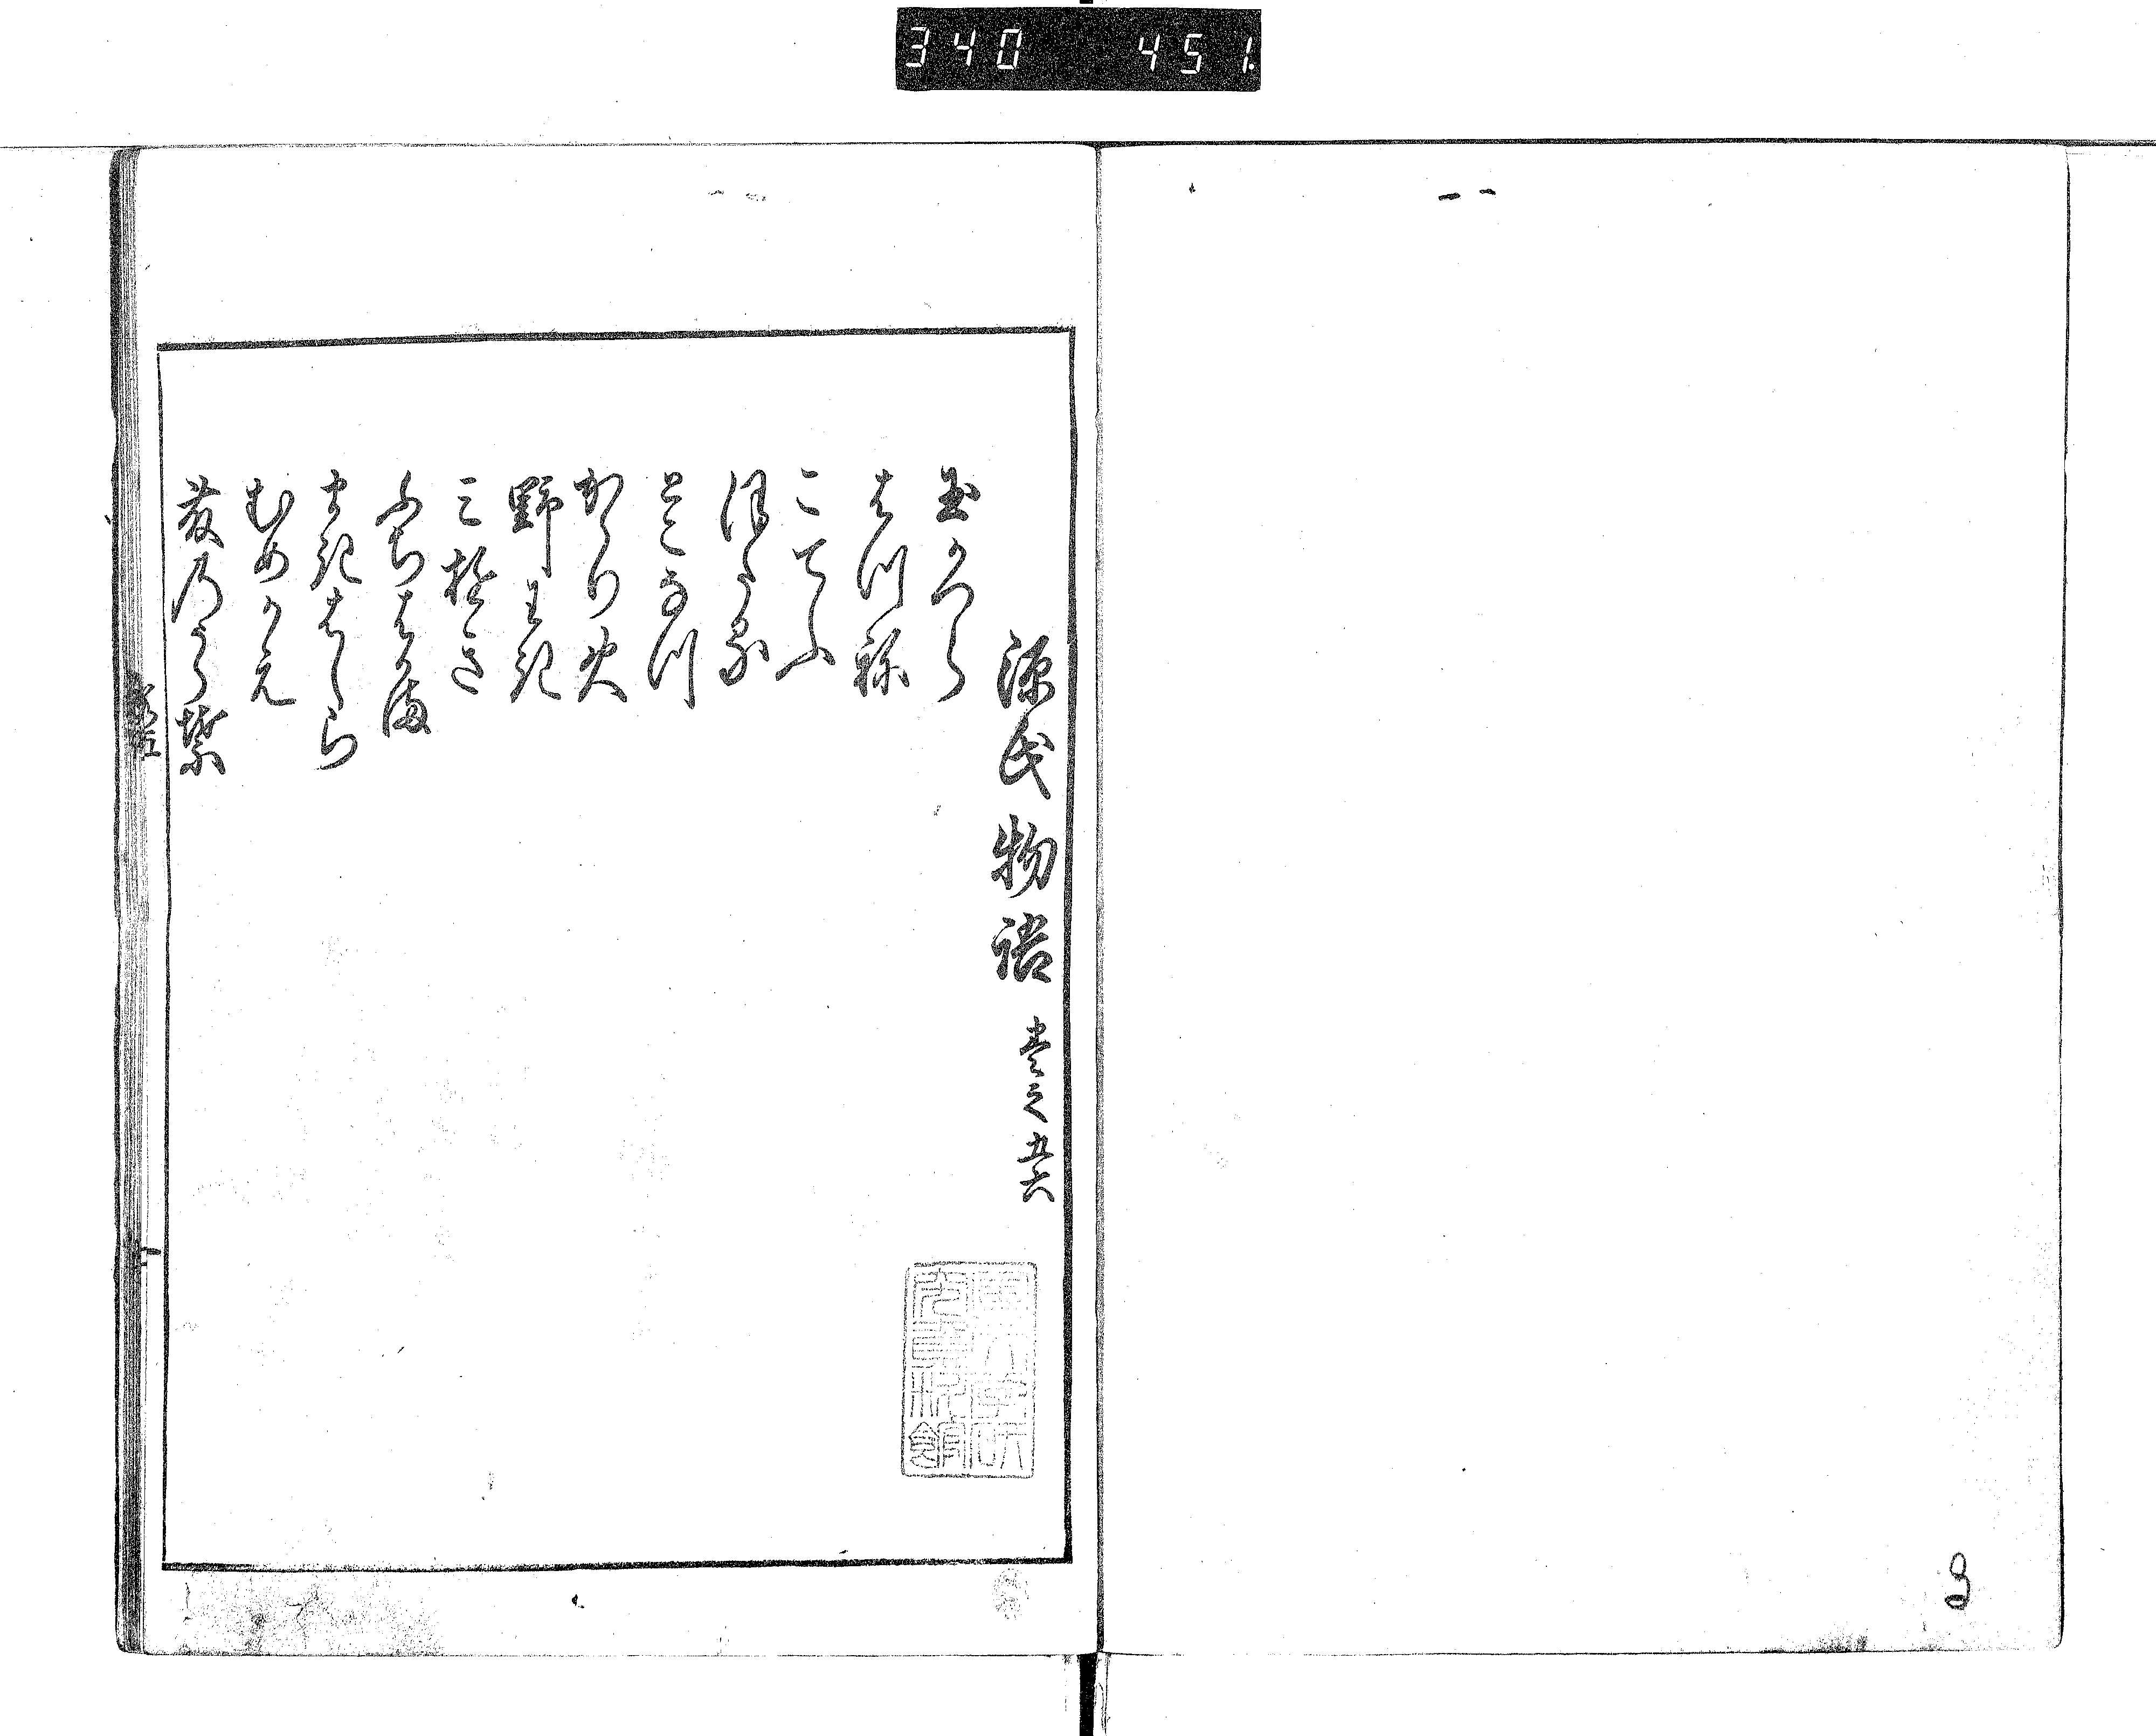 340 451.
源氏物語 巻之五六
玉かつら
はつ祢
こてふ
ほたる
とこなつ
かゝり火
野わき
みゆき
ふちはかま
まきはしら
むめかえ
藤乃うら葉